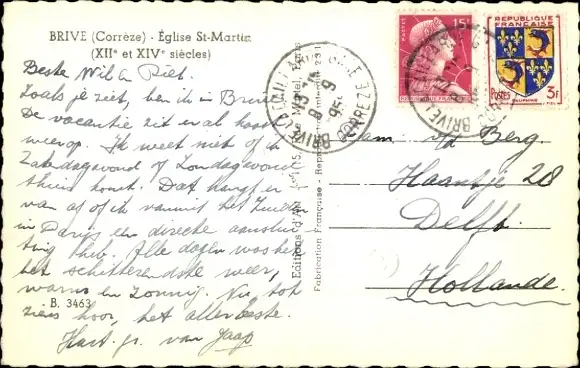 BRIVE (Corrèze) - Église St-Martin
(XIIe et XIVe siècles)
Beste Wil & Riet.
Zoals je ziet, ben ik in Brive
De vacantie zit er al haast
weer op. Ik weet niet of ik
Zaterdagavond of Zondagavond
thuis komt. Dat hangt er
van af of ik vanuit het Zuiden
in Parijs een directe aanslui
ting heb. Alle dagen was het
het schitterendste weer,
warm en zonnig. Nu tot
- B. 3463
ziens hoor, het allerbeste.
Hart. gr. van Jaap
Editions d'Art
Fabrication Française - Repro
BRIVE LA GAILLARDE
CORREZE
13
8-9
195
POSTES
15F
REPUBLIQUE FRANÇAISE
REPUBLIQUE
FRANÇAISE
POSTES
DAUPHINE
3F
Fam. v/d Berg.
Haantje 28
Delft.
Hollande.